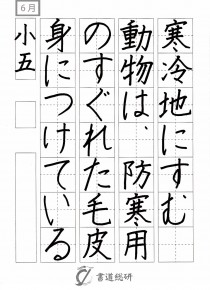 6月
寒冷地にすむ
動物は、防寒用
のすぐれた毛皮
身につけている
小五
書道総研